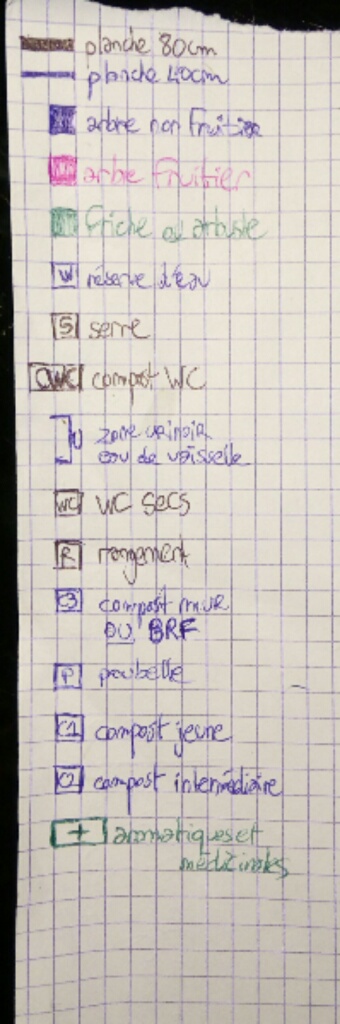 planche 80cm
planche 40cm
arbre non fruitier
arbre fruitier
friche ou arbuste
W réserve d'eau
S serre
CWC compost WC
U zone urinoir
eau de vaisselle
WC WC secs
R rangement
C3 compost mur
OU BRF
P poubelle
C1 compost jeune
C2 compost intermédiaire
+ aromatiques et
médicinales